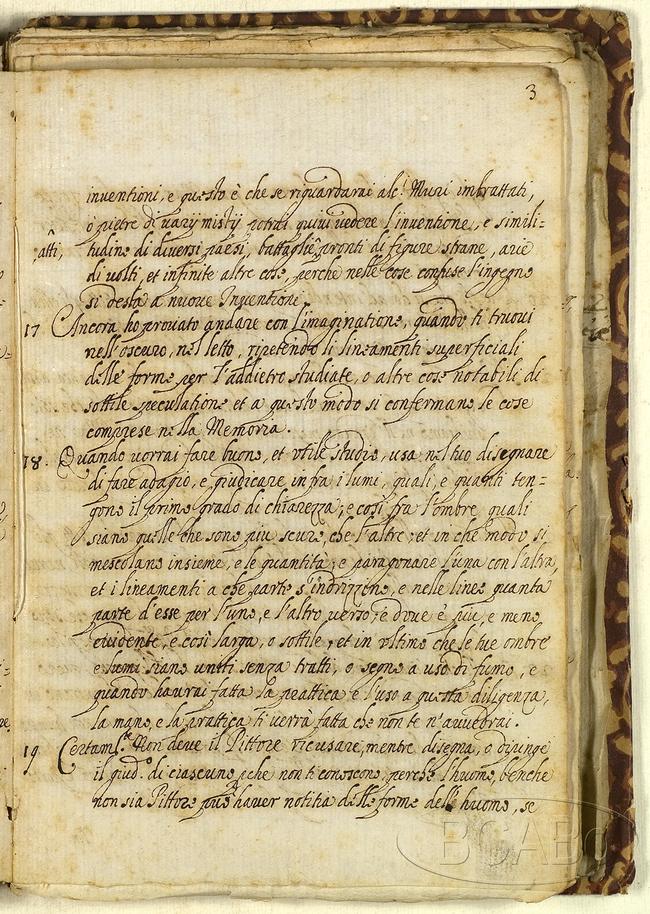 3
inventioni, e questo è che se riguardarai alc.i Muri imbrattati,
ò pietre di varij misti, potrai quivi vedere l'inventione, e simili-
atti, tudine di diversi paesi, battaglie, pronti di figure strane, arie
di volti, et infinite altre cose, perche nelle cose confuse l'ingegno
si desta a nuove Inventioni.
17 Ancora ho provato andare con l'imaginatione, quando ti truovi
nell'oscuro, nel letto, ripetendo li lineamenti superficiali
delle forme per l'addietro studiate, o altre cose notabili di
sottile speculatione et a questo modo si confermano le cose
comprese nella Memoria.
18. Quando vorrai fare buono, et utile studio, usa nel tuo disegnare
di fare adagio, e giudicare infra i lumi, quali, e quanti ten-
gono il primo grado di chiarezza, e così fra l'ombre quali
siano quelle che sono piu scure, che l'altre, et in che modo si
mescolano insieme, e le quantità, e paragonare l'una con l'altra,
et i lineamenti a che parte s'indrizzino, e nelle linee quanta
parte d'esse per l'uno, e l'altro verso, e dove è piu, e meno
evidente, e così larga, o sottile, et in ultimo che le tue ombre
e lumi siano uniti senza tratti, o segno a uso di fumo, e
quando haurai fatta la prattica e l'uso a questa diligenza,
la mano, e la prattica ti verrà fatta che non te n'avvedrai.
19 Certam.te Non deve il Pittore ricusare, mentre disegna, o dipinge
il giud.o di ciascuno, perche l'huomo, benche
non sia Pittore può haver notitia delle forme dell' huomo, se
BCABo